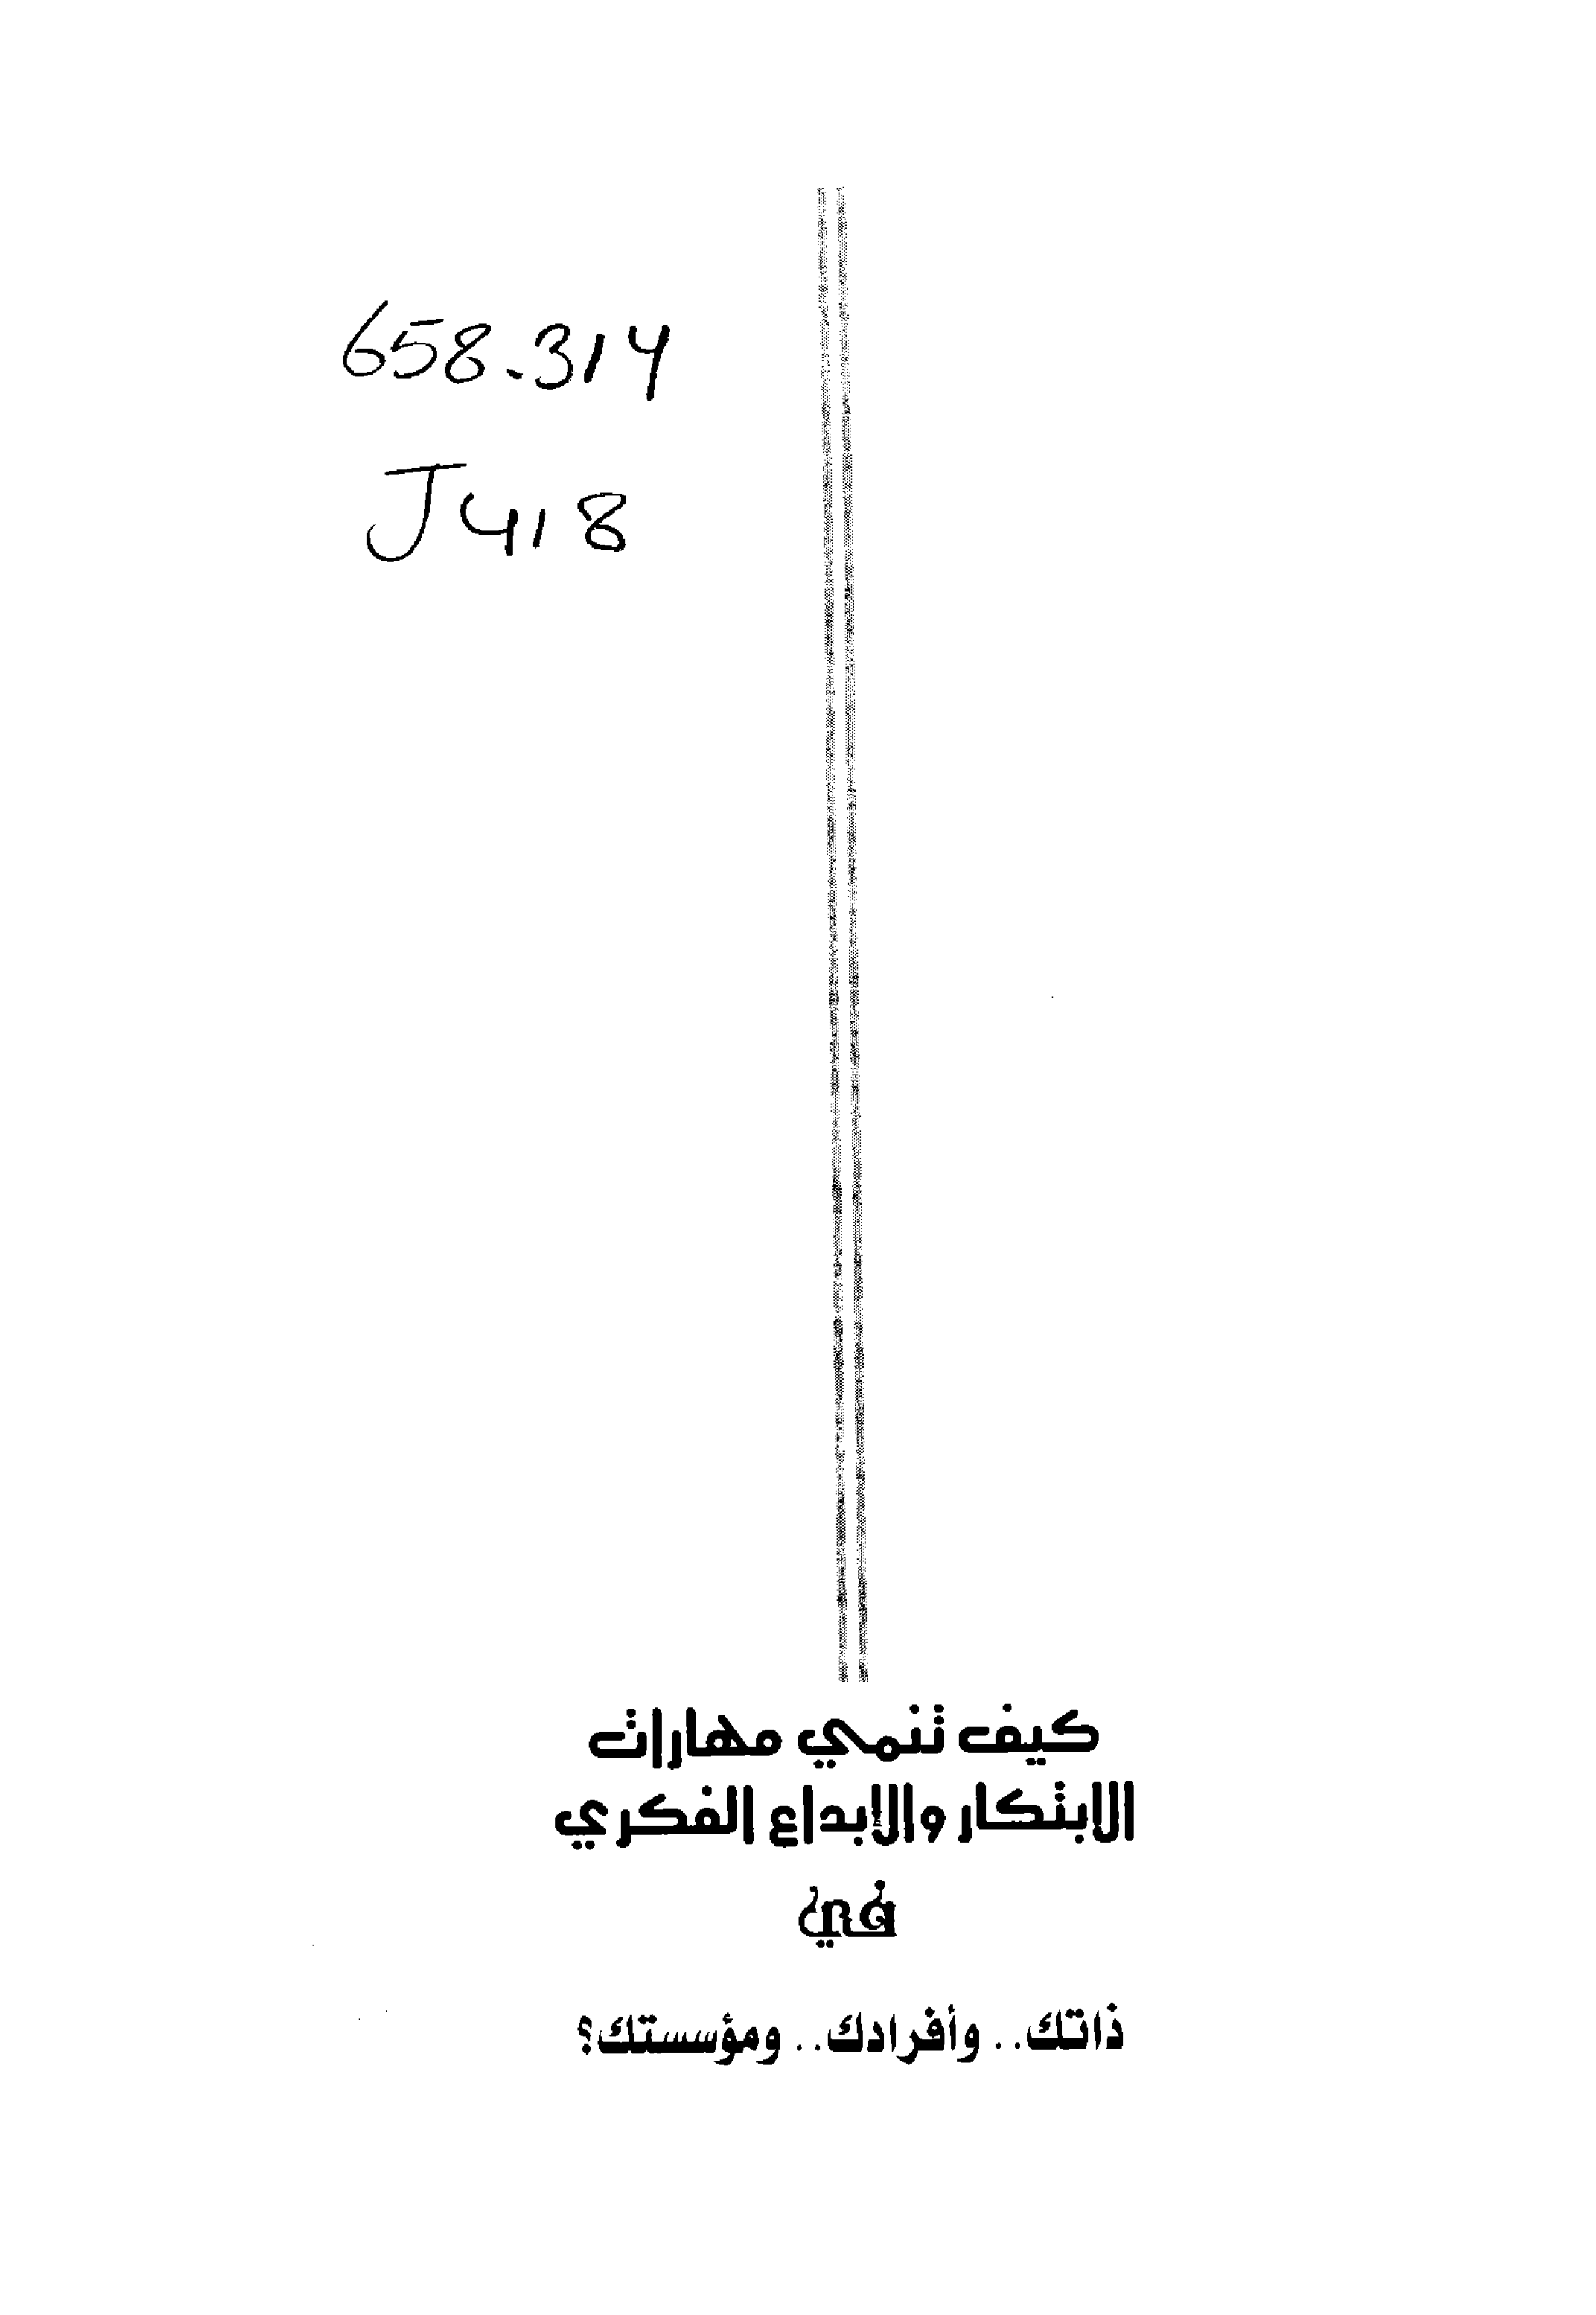 658.314
J418
كيف تنمي مهارات
الابتكار والإبداع الفكري
في
ذاتك.. وأفرادك.. ومؤسستك؟